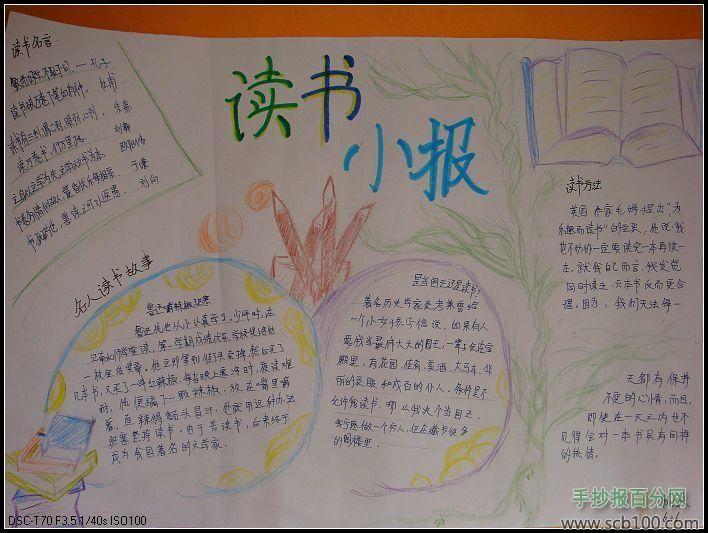 读书名言
敏而好学，不耻下问。——孔子
读书破万卷，下笔如有神。 杜甫
读书有三到，眼到，心到，口到。 朱熹
立身以立学为先，立学以读书为本 欧阳修
于谦
书犹药也，善读之可以医愚。 刘向
读书
小报
读书方法
英国作家毛姆提出“为
乐趣而读书”的主张，他说“我
也不劝你一定要读完一本再读一
本。就我的而言，我发觉
同时读五、六本书反而更合
理。因为，我们无法每一
天都有保持
不变的心情，而且，
即使在一天之内也不
见得会对一本书具有同样
的热情。
名人读书故事
鲁迅嚼辣椒驱寒
鲁迅先生从小认真学习。少年时，在
江南水师学堂读书，第一学期成绩优异，学校奖给他
一枚金质奖章。他立即拿到街头卖掉，然后买了
几本书，又买了一串红辣椒。每当晚上寒冷时，夜读难
耐，他便摘下一颗辣椒，放在嘴里嚼
着，直辣得额头冒汗。他就用这种办法
驱寒坚持读书。由于苦读书，后来终于
成为我国著名的文学家。
是当国王还是读书？
著名历史学家麦考莱曾给
一个小女孩写信说，如果有人
要我当最伟大的国王，一辈子住在宫
殿里，有花园、佳肴、美酒、大马车、华
丽的衣服和成百的仆人，条件是不
允许我读书，那么我决不当国王。
我宁愿做一个穷人，住在藏书很多
的阁楼里，
手抄报百分网
www.scb100.com
DSC-T70 F3.5 1/40s ISO100